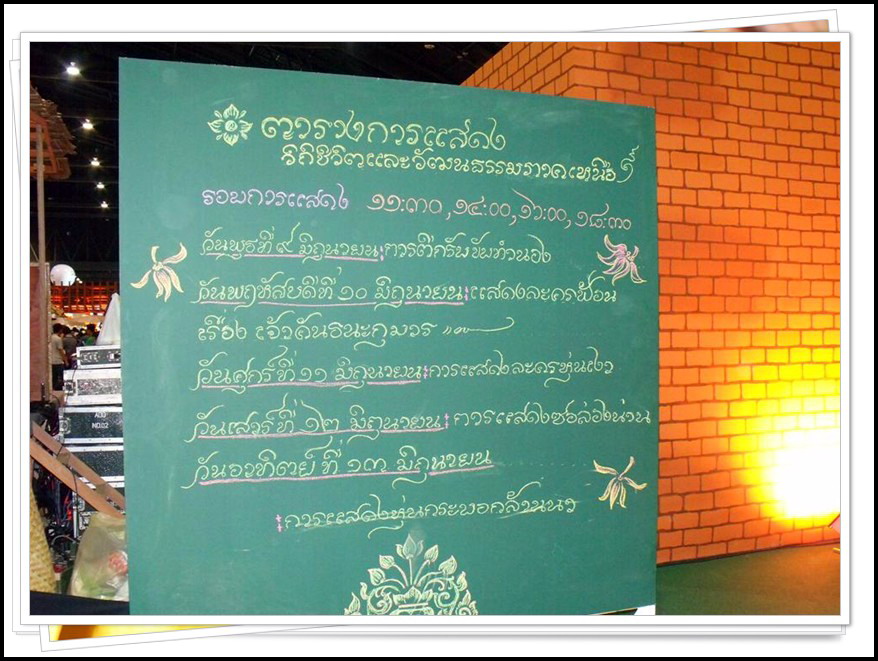 ตารางการแสดง
วิถีชีวิตและวัฒนธรรมภาคเหนือ
รอบการแสดง ๑๑:๓๐,๑๔:๐๐,๑๖:๐๐,๑๘:๓๐
วันพุธที่ ๙ มิถุนายน:การตีกรับขับทำนอง
วันพฤหัสบดีที่ ๑๐ มิถุนายน:แสดงละครฟ้อน
เรื่อง เจ้าคันธนะกุมาร
วันศุกร์ที่ ๑๑ มิถุนายน:การแสดงละครหุ่นเงา
วันเสาร์ที่ ๑๒ มิถุนายน:การแสดงซอล่องน่าน
วันอาทิตย์ ที่ ๑๓ มิถุนายน
:การแสดงหุ่นกระบอกล้านนา